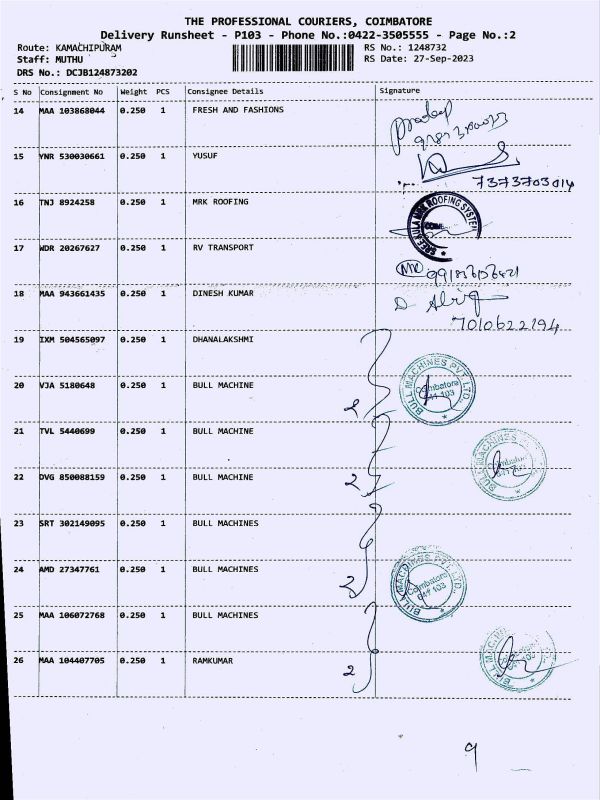 THE PROFESSIONAL COURIERS, COIMBATORE
Delivery Runsheet - P103 - Phone No.:0422-3505555 - Page No.:2
Route: KAMACHIPURAM RS No.: 1248732
Staff: MUTHU RS Date: 27-Sep-2023
DRS No.: DCJB124873202
S No Consignment No Weight PCS Consignee Details Signature
14 MAA 103868044 0.250 1 FRESH AND FASHIONS
Pradeep
15 YNR 530030661 0.250 1 YUSUF
7373703014
16 TNJ 8924258 0.250 1 MRK ROOFING
SREE BULA MRK ROOFING SYSTEM
17 WDR 20267627 0.250 1 RV TRANSPORT
18 MAA 943661435 0.250 1 DINESH KUMAR
7010622194
19 IXM 504565097 0.250 1 DHANALAKSHMI
20 VJA 5180648 0.250 1 BULL MACHINE
BULL MACHINES PVT LTD., Coimbatore 641 103
21 TVL 5440699 0.250 1 BULL MACHINE
BULL MACHINES Coimbatore 641 103
22 DVG 850088159 0.250 1 BULL MACHINE
2
23 SRT 302149095 0.250 1 BULL MACHINES
24 AMD 27347761 0.250 1 BULL MACHINES
2
BULL MACHINES PVT. LTD., Coimbatore 641 103
25 MAA 106072768 0.250 1 BULL MACHINES
26 MAA 104407705 0.250 1 RAMKUMAR
2
BULL MACHINES
9